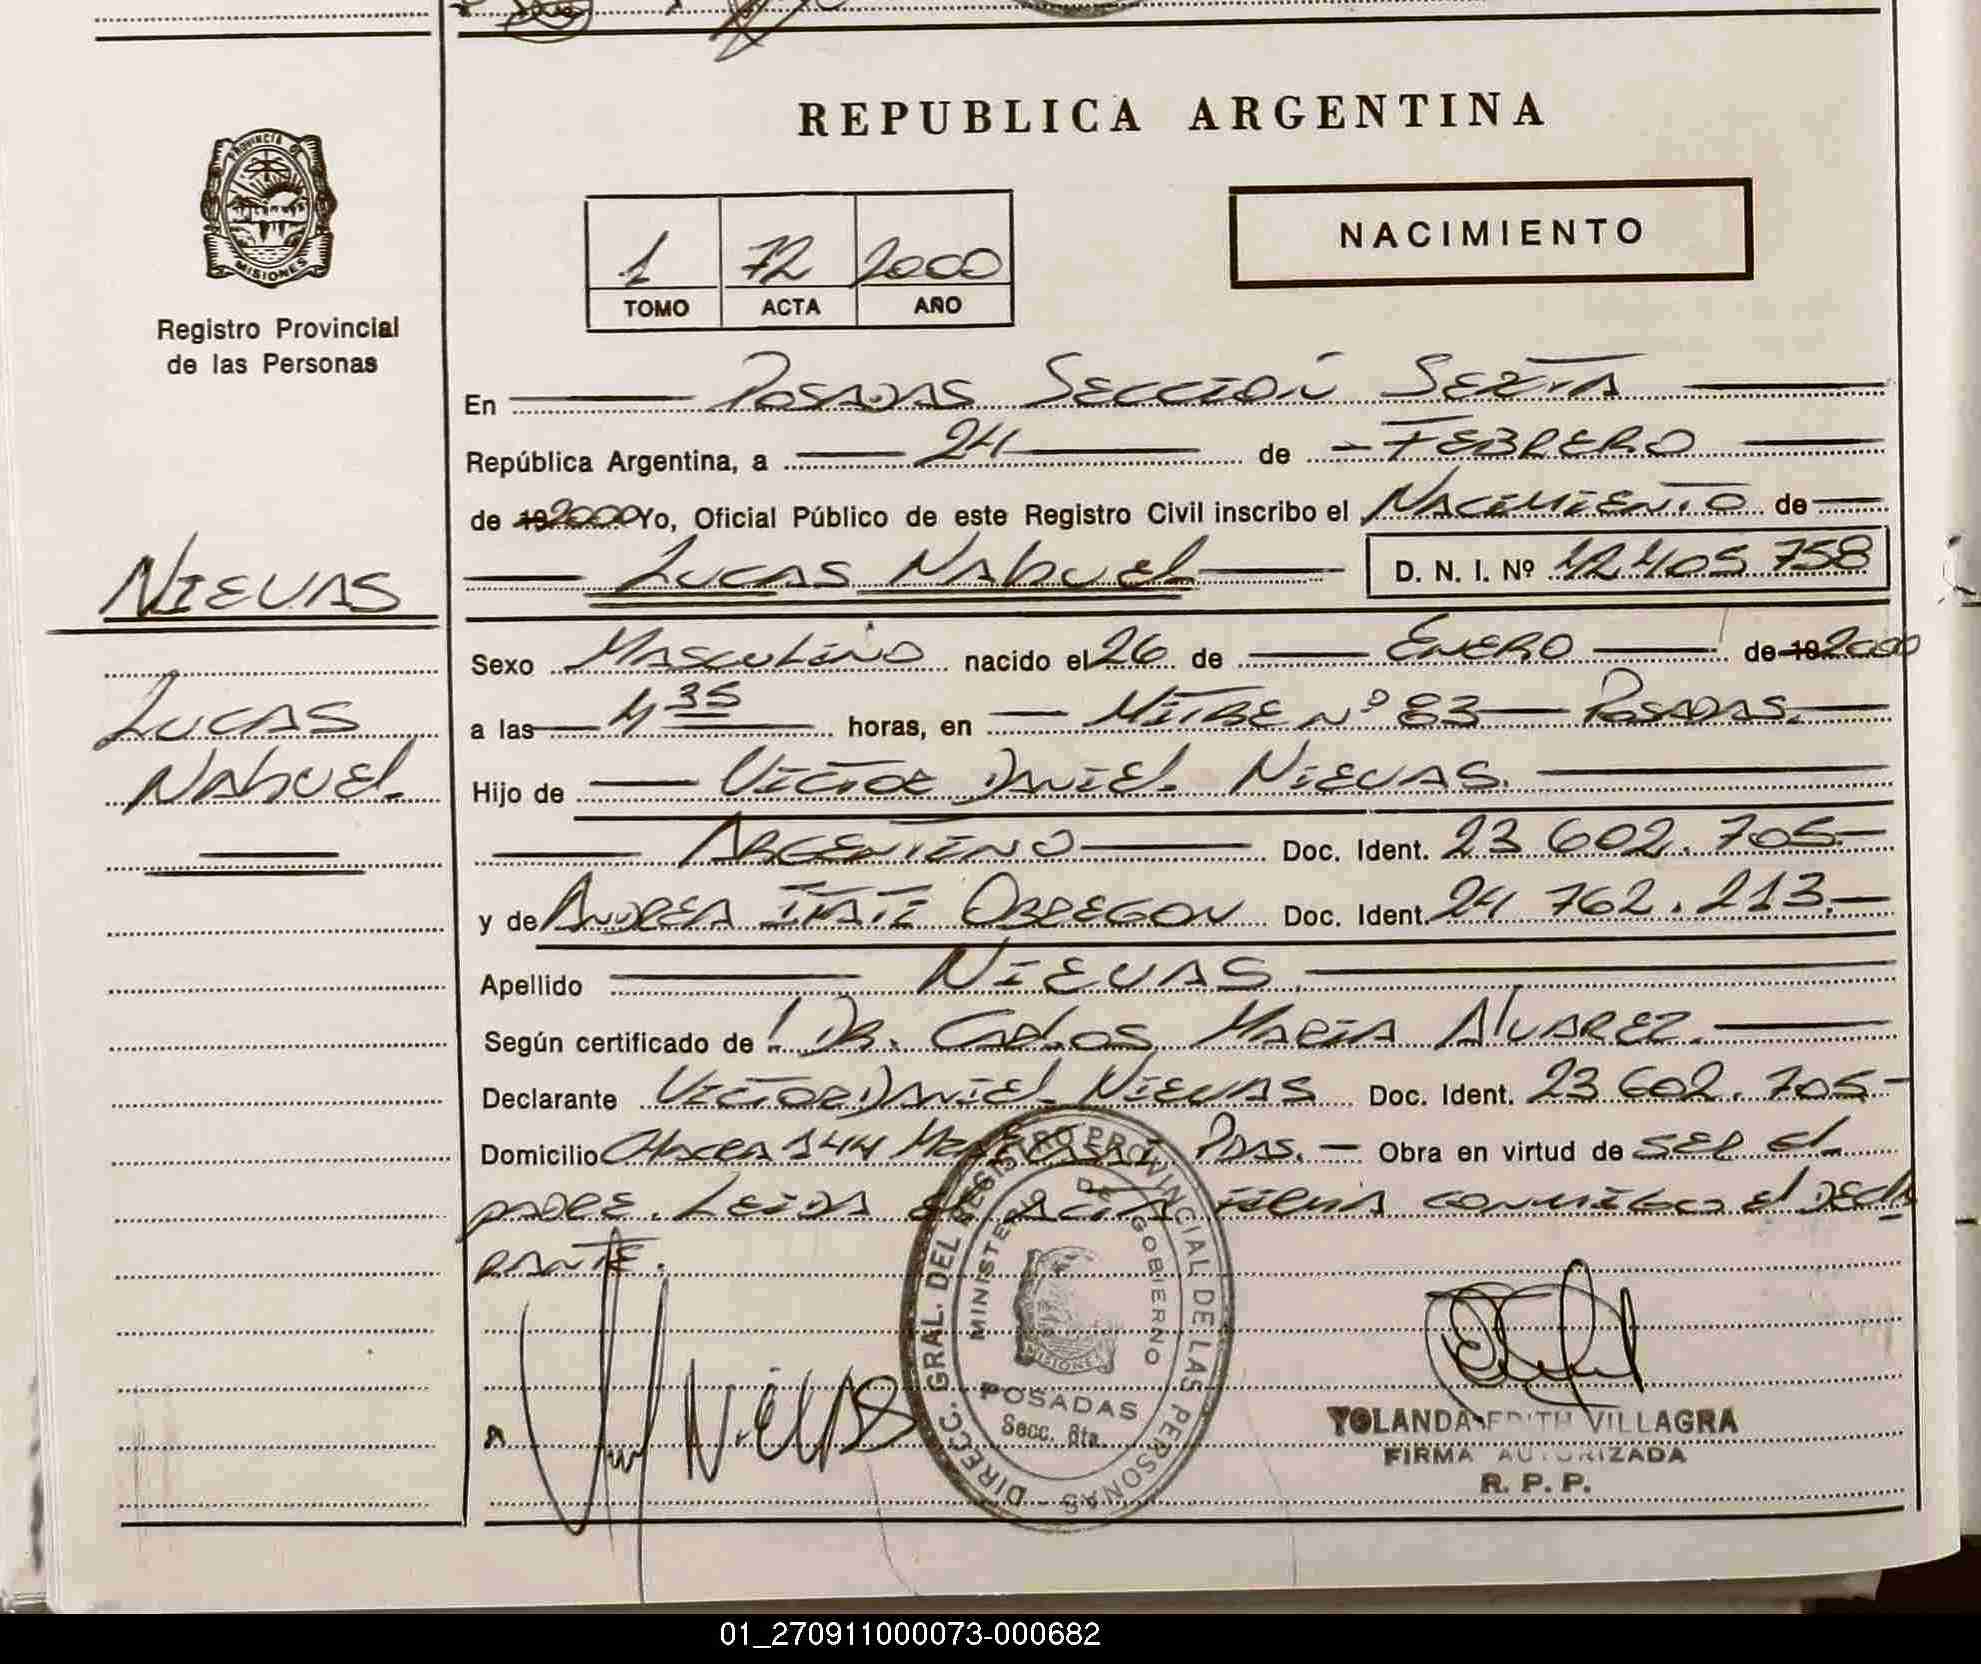 REPUBLICA ARGENTINA
PROVINCIA DE
MISIONES
Registro Provincial
de las Personas
1 72 2000
TOMO ACTA AÑO
NACIMIENTO
En POSADAS SECCIÓN SEXTA
República Argentina, a 24 de FEBRERO
de 19 2000 Yo, Oficial Público de este Registro Civil inscribo el NACIMIENTO de
NIEVAS
LUCAS NAhuel D. N. I. Nº 42.405.758
Sexo MASCULINO nacido el 26 de ENERO de 19 2000
LUCAS
NAhuel
a las 4 35 horas, en MITRE Nº 83 POSADAS.
Hijo de VICTOR DANIEL NIEVAS.
ARGENTINO Doc. Ident. 23 602.705.-
y de ANDREA ITATI OBREGON Doc. Ident. 24 762.213.-
Apellido NIEVAS
Según certificado de DR. CARLOS MARIA ALVAREZ.
Declarante VICTOR DANIEL NIEVAS Doc. Ident. 23 602.705.-
Domicilio CHACRA 144 PDAS. - Obra en virtud de SER EL
PADRE. LEIDA EL ACTA FIRMA CONMIGO EL DECLA
RANTE.
Nievas
DIRECC. GRAL. DEL REGISTRO PROVINCIAL DE LAS PERSONAS
MINISTERIO DE GOBIERNO
MISIONES
POSADAS
Secc. 6ta.
YOLANDA EDITH VILLAGRA
FIRMA AUTORIZADA
R. P. P.
01_270911000073-000682